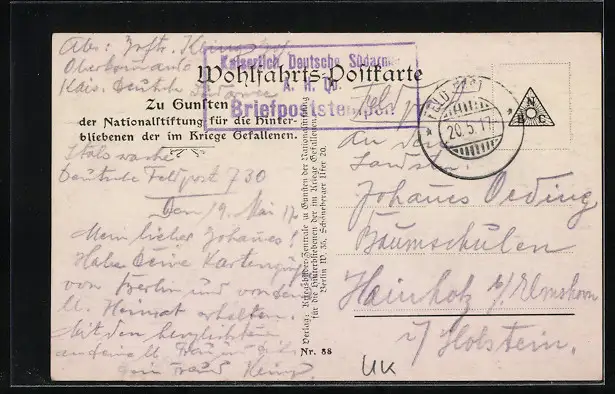 Abs:
Oberkommando
Kais. Deutsch Südarmee
Kaiserlich Deutsche Südarmee
A. H. Qu.
Briefpoststempel
Wohlfahrts-Postkarte
Zu Gunsten
der Nationalstiftung für die Hinter-
bliebenen der im Kriege Gefallenen.
Stabswache
Deutsche Feldpost 730
Den 19. Mai 17
Mein lieber Johannes!
Habe Deine Kartengrüße
von Berlin und von der
Heimat erhalten.
Mit den herzlichsten
Verlag: Kriegsbilder-Zentrale zu Gunsten der Nationalstiftung
für die Hinterbliebenen der im Kriege Gefallenen
Berlin W. 35, Schöneberger Ufer 20.
Nr. 38
20.5.17
N
B C
An den
Landst.
Johannes
Baumschulen
Hainholz b/Elmshorn
i/Holstein.
UK